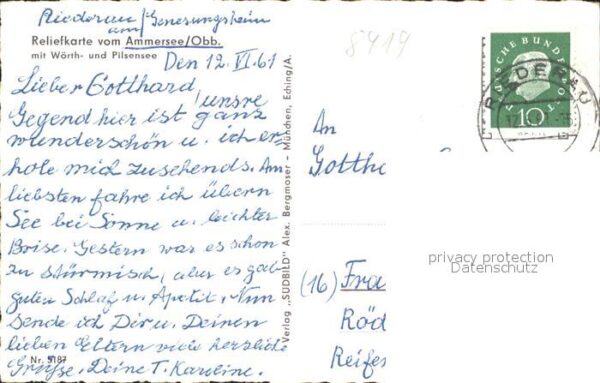 Riederau/Genesungsheim
am
Reliefkarte vom Ammersee/Obb.
mit Wörth- und Pilsensee
Den 12. VI. 61
Lieber Gotthard,
unsre
Gegend hier ist ganz
wunderschön u. ich er-
hole mich zusehends. Am
liebsten fahre ich übern
See bei Sonne u. leichter
Brise. Gestern war es schon
zu stürmisch, aber es gab
guten Schlaf u. Apetit. Nun
sende ich Dir u. Deinen
lieben Eltern viele herzliche
Grüsse. Deine T. Karoline.
Nr. 5187
Verlag „SÜDBILD" Alex. Bergmoser - München, Eching/A.
8919
DEUTSCHE BUNDESPOST
10
RIEDERAU
An
Gotthe
(16) Fra
Röd
Reifes
privacy protection
Datenschutz